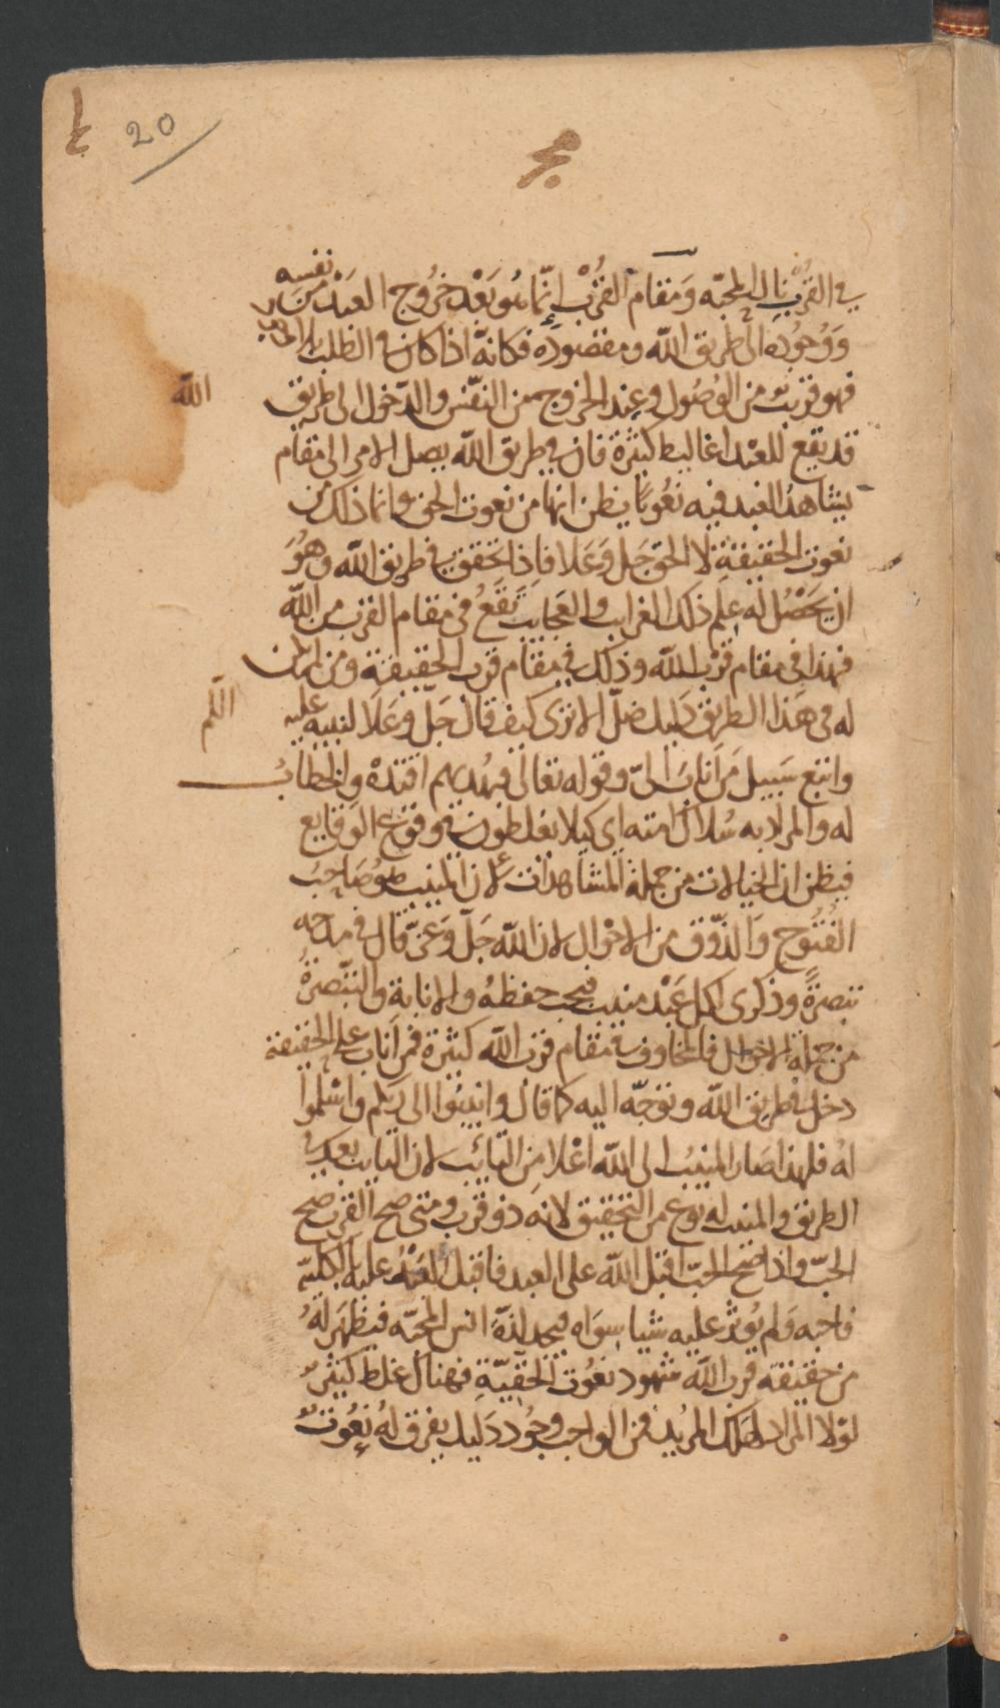 20
في القرب نال المحبّه وَمقام القُرْب إنّما هُو بَعْد خرُوج العبْد من نفسه
وَوُجُودِه الى طريق الله ومقصوده فكانهُ اذا كان في الطلب
فهو قريب من الوصُول وعِند الخروج من النفس والدّخول الى طريق الله
قد يقع للعبْد اغاليط كثيرة فان في طريق الله يصل الامر الى مقام
يشاهدُ العَبد فيه نعُوتًا يظن انها من نعوت الحق وانما ذلك من
نعوت الحقيقة لا الحَق جَل وَعَلا فاِذا تحقق في طريق الله وهُوَ
ان يَحْصُل له علم ذلك الغرايب والعَجايب تَقَعُ في مقام القرب من الله
فهذا في مقام قُرْب الله وذلك في مقام قرب الحقيقة ومن لم يكن
له في هَذا الطريق دَليل ضلّ الا ترى كيف قال جَلّ وَعَلا لنبيه عليه السّلم
واتبع سَبيل مَن اَنابَ الىّ وقوله تعالى فبهُديهم اقتدهْ والخطابُ
له والمراد به سُلّاك امته اى كيلا يغلطون في وقوع الوقايع
فيظن ان الخيالات من جملة المشاهدات لان المنيب هو صَاحبُ
الفُتُوح وَالذّوق من الاحْوال لان الله جَلّ وَعَزّ قال في مدحه
تبصرةً وذكرى لكل عَبْد منيب فيجب حفظهُ والانابة والتبصرةُ
من جملة الاحوال فالمخاوف في مقام قرب الله كثيرة فمن اَناب على الحقيقة
دخل في طريق الله وتوجّه اليه كما قال وانيبُوا الى ربكم واسْلموا
لهُ فلهذا صَار المنيبُ الى الله اعْلا مِن التائب لان التايب بعدُ في
الطريق والمنيب له نوع من التحقيق لانه ذو قرب ومتى صح القرب صح
الحبّ واذا صَحّ الحبّ اقبل الله على العبد فاقبل العَبْدُ عليه بالكليّة
فاحبه وَلم يُوثر عليه شيا سِوَاه فيجد لذة انس المحبّه فيظهرَ لهُ
من حقيقة قرب الله شهود نعُوت الحقيّة فهناك غلط كثيرٌ
لوْلا المراد لهَلك المريْد فمن الواجب وجُود دَليل يفرق لهُ نعُوت